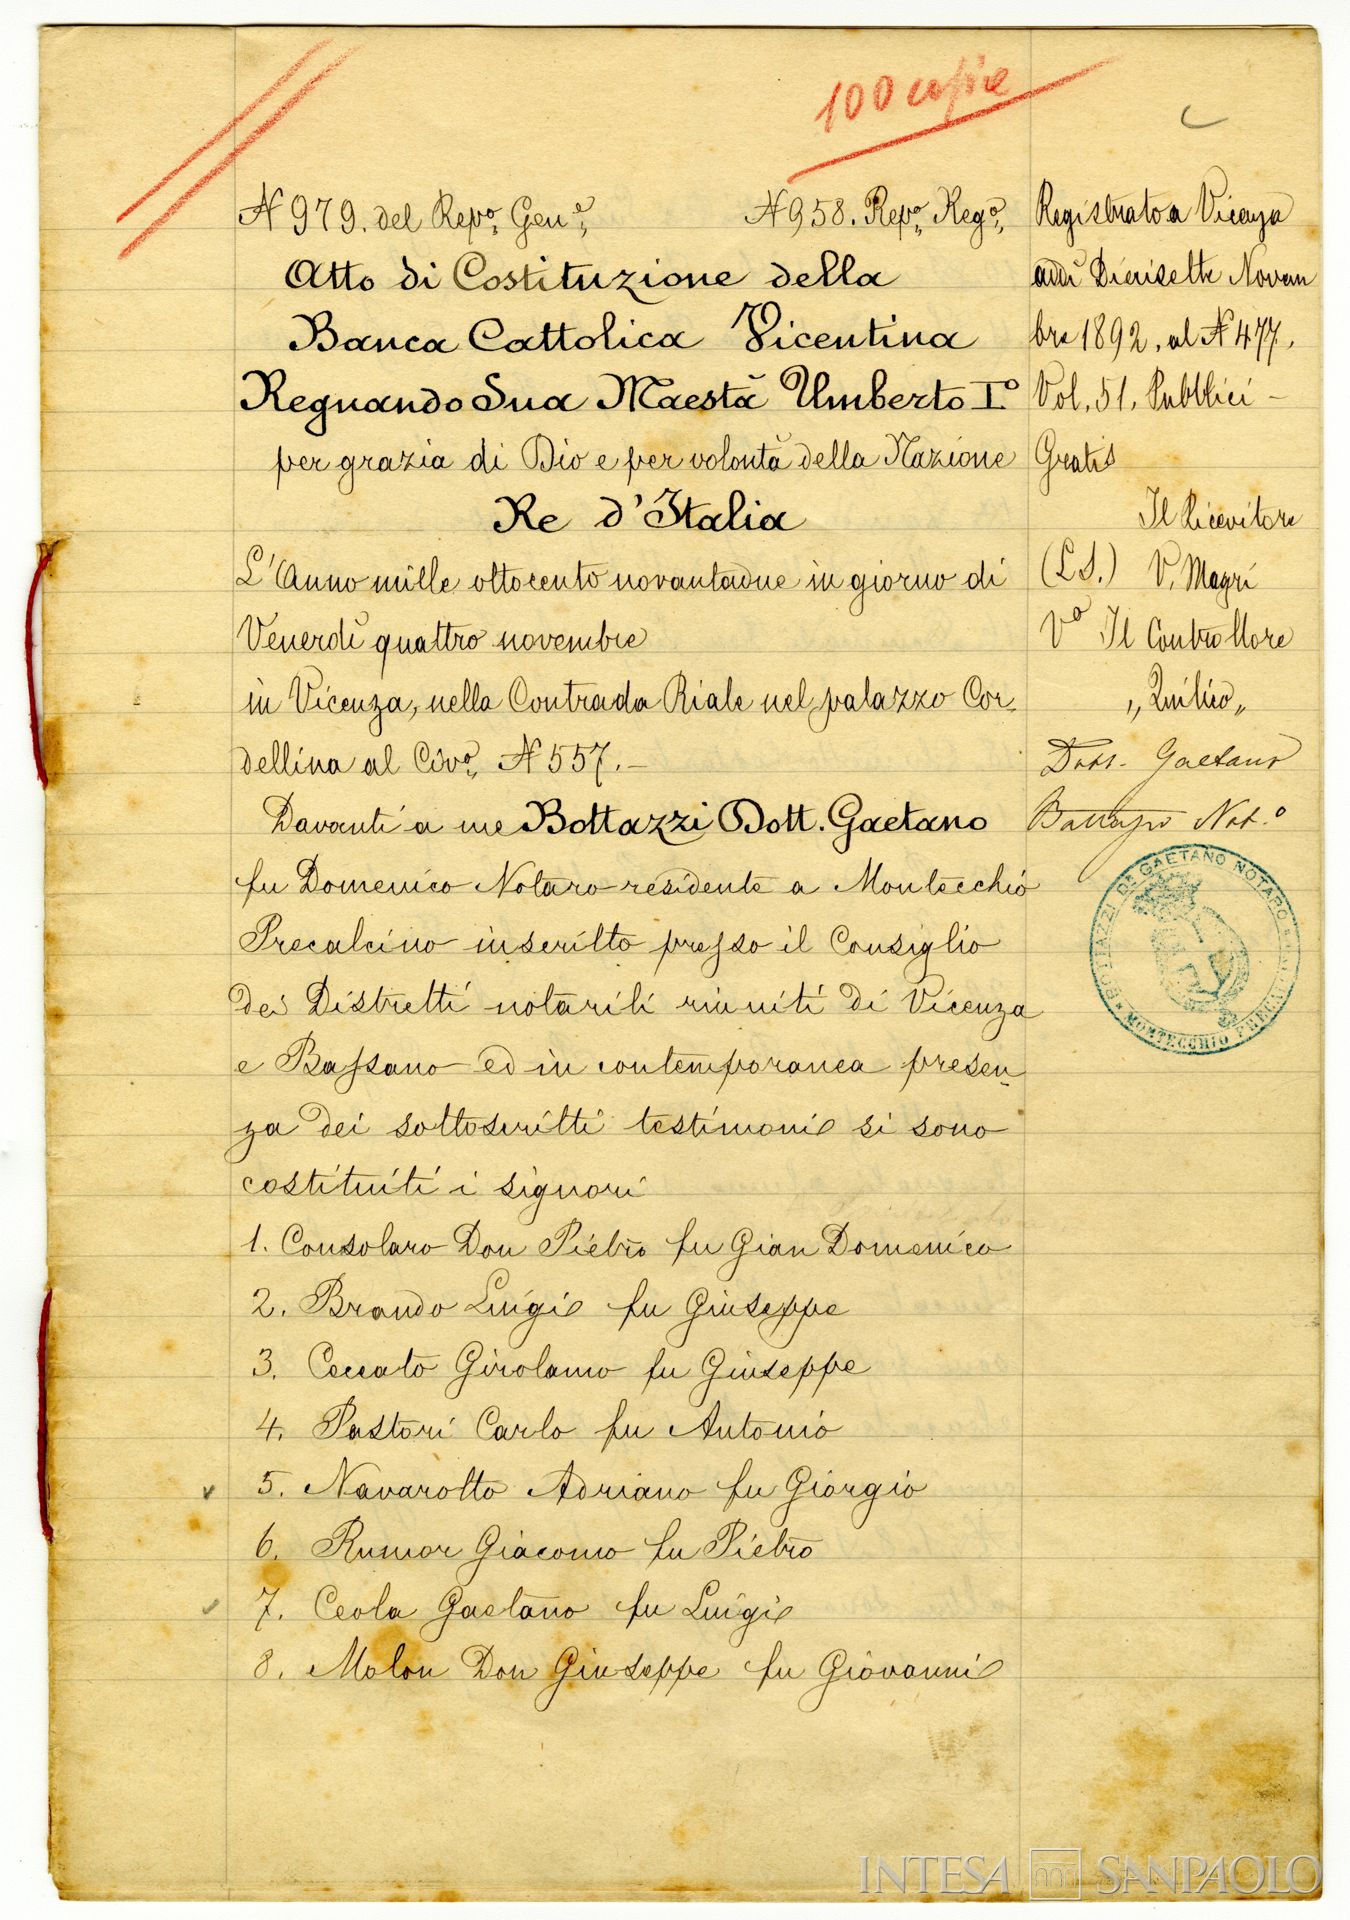 100 copie
N 979. del Repº. Genᵉ.
N 958. Repº. Regº.
Atto di Costituzione della
Banca Cattolica Vicentina
Regnando Sua Maestà Umberto Iº
per grazia di Dio e per volontà della Nazione
Re d'Italia
L'Anno mille ottocento novantadue in giorno di
Venerdì quattro novembre
in Vicenza, nella Contrada Riale nel palazzo Cor
dellina al Civº. N 557. –
Davanti a me Bottazzi Dott. Gaetano
fu Domenico Notaro residente a Montecchio
Precalcino inscritto presso il Consiglio
dei Distretti notarili riuniti di Vicenza
e Bassano ed in contemporanea presen
za dei sottoscritti testimoni si sono
costituiti i signori
1. Consolaro Don Pietro fu Gian Domenico
2. Brando Luigi fu Giuseppe
3. Ceccato Girolamo fu Giuseppe
4. Pastori Carlo fu Antonio
5. Navarotto Adriano fu Giorgio
6. Rumor Giacomo fu Pietro
7. Ceola Gaetano fu Luigi
8. Molon Don Giuseppe fu Giovanni
Registrato a Vicenza
addì Diciisette Novem
bre 1892, al N 477.
Vol. 51. Pubblici –
Gratis
Il Ricevitore
(L S.) V. Magri
Vº Il Controllore
„ Quilico „
Dott. Gaetano
Bottazzi Not.º
BOTTAZZI Dr. GAETANO NOTARO
MONTECCHIO PRECALCINO
INTESA SANPAOLO